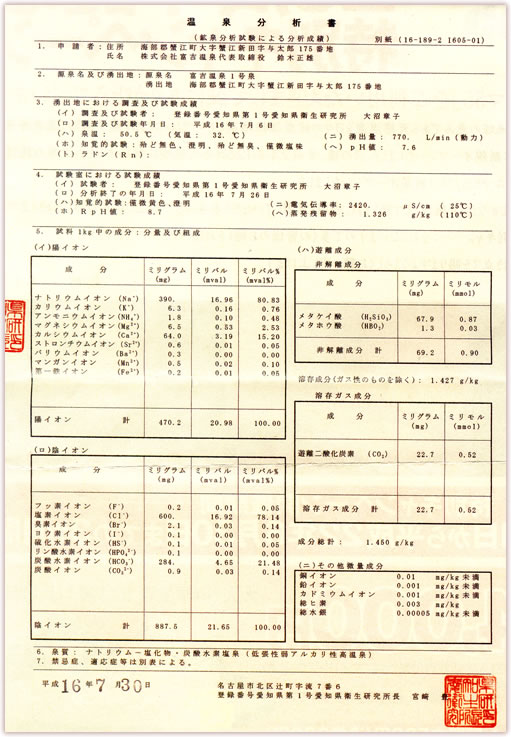 温泉分析書
(鉱泉分析試験による分析成績) 別紙 (16-189-2 1605-01)
1. 申請者：住所 海部郡蟹江町大字蟹江新田字与太郎175番地
氏名 株式会社富吉温泉代表取締役 鈴木正雄
2. 源泉名及び湧出地：源泉名 富吉温泉1号泉
湧出地 海部郡蟹江町大字蟹江新田字与太郎175番地
3. 湧出地における調査及び試験成績
(イ) 調査及び試験者： 登録番号愛知県第1号愛知県衛生研究所 大沼章子
(ロ) 調査及び試験年月日： 平成16年7月6日
(ハ) 泉温： 50.5 ℃ (気温： 32. ℃) (ニ) 湧出量： 770. L/min (動力)
(ホ) 知覚的試験：殆ど無色、澄明、殆ど無臭、微塩味 (ヘ) pH値： 7.6
(ト) ラドン (Rn)：
4. 試験室における試験成績
(イ) 試験者： 登録番号愛知県第1号愛知県衛生研究所 大沼章子
(ロ) 分析終了の年月日： 平成16年7月26日
(ハ) 知覚的試験：微黄色、澄明 (ニ) 電気伝導率： 2420. μS/cm (25℃)
(ホ) RpH値： 8.7 (ヘ) 蒸発残留物： 1.326 g/kg (110℃)
5. 試料1kg中の成分：分量及び組成
(イ) 陽イオン
成分 ミリグラム (mg) ミリバル (mval) ミリバル% (mval%)
ナトリウムイオン (Na⁺) 390. 16.96 80.83
カリウムイオン (K⁺) 6.3 0.16 0.76
アンモニウムイオン (NH₄⁺) 1.8 0.10 0.48
マグネシウムイオン (Mg²⁺) 6.5 0.53 2.53
カルシウムイオン (Ca²⁺) 64.0 3.19 15.20
ストロンチウムイオン (Sr²⁺) 0.6 0.01 0.05
バリウムイオン (Ba²⁺) 0.3 0.00 0.00
マンガンイオン (Mn²⁺) 0.5 0.02 0.10
第一鉄イオン (Fe²⁺) 0.2 0.01 0.05
陽イオン 計 470.2 20.98 100.00
(ロ) 陰イオン
成分 ミリグラム (mg) ミリバル (mval) ミリバル% (mval%)
フッ素イオン (F⁻) 0.2 0.01 0.05
塩素イオン (Cl⁻) 600. 16.92 78.14
臭素イオン (Br⁻) 2.1 0.03 0.14
ヨウ素イオン (I⁻) 0.1 0.00 0.00
硫化水素イオン (HS⁻) 0.1 0.01 0.05
リン酸水素イオン (HPO₄²⁻) 0.1 0.00 0.00
炭酸水素イオン (HCO₃⁻) 284. 4.65 21.48
炭酸イオン (CO₃²⁻) 0.9 0.03 0.14
陰イオン 計 887.5 21.65 100.00
(ハ) 遊離成分
非解離成分
成分 ミリグラム (mg) ミリモル (mmol)
メタケイ酸 (H₂SiO₃) 67.9 0.87
メタホウ酸 (HBO₂) 1.3 0.03
非解離成分 計 69.2 0.90
溶存成分(ガス性のものを除く)： 1.427 g/kg
溶存ガス成分
成分 ミリグラム (mg) ミリモル (mmol)
遊離二酸化炭素 (CO₂) 22.7 0.52
溶存ガス成分 計 22.7 0.52
成分総計： 1.450 g/kg
(ニ) その他微量成分
銅イオン 0.01 mg/kg未満
鉛イオン 0.001 mg/kg未満
カドミウムイオン 0.001 mg/kg未満
総ヒ素 0.003 mg/kg
総水銀 0.00005 mg/kg未満
6. 泉質： ナトリウム－塩化物・炭酸水素塩泉 (低張性弱アルカリ性高温泉)
7. 禁忌症、適応症等は別表による。
平成16年7月30日 名古屋市北区辻町字流7番6
登録番号愛知県第1号愛知県衛生研究所長 宮崎